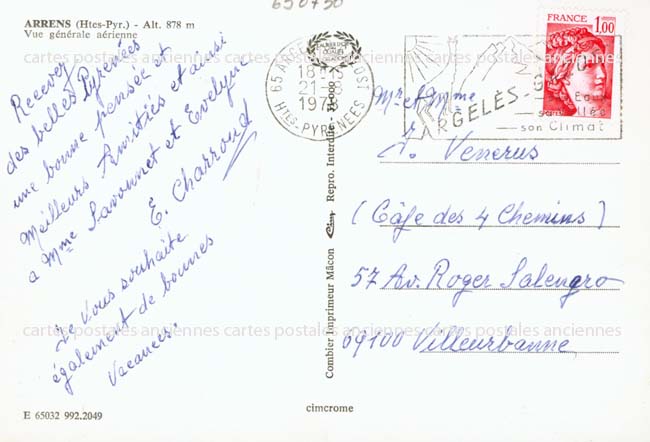 650750
ARRENS (Htes-Pyr.) - Alt. 878 m
Vue générale aérienne
Recevez
des belles Pyrénées
une bonne pensée et
Meilleurs Amitiés et ainsi
a Mme Savonnet et Evelyne
E. Charroud
Je vous souhaite
également de bonnes
Vacances.
E 65032 992.2049
Combier Imprimeur Mâcon Repro. Interdite
cimcrome
65 ARGELÈS-GAZOST
21-8
1978
HTES-PYRENEES
ARGELÈS-G
son Climat
FRANCE
1,00
Mr et Mme
J. Venerus
(Câfe des 4 Chemins)
57 Av. Roger Salengro
69100 Villeurbanne
cartes postales anciennes cartes postales anciennes cartes postales anciennes
cartes postales anciennes cartes postales anciennes cartes postales anciennes